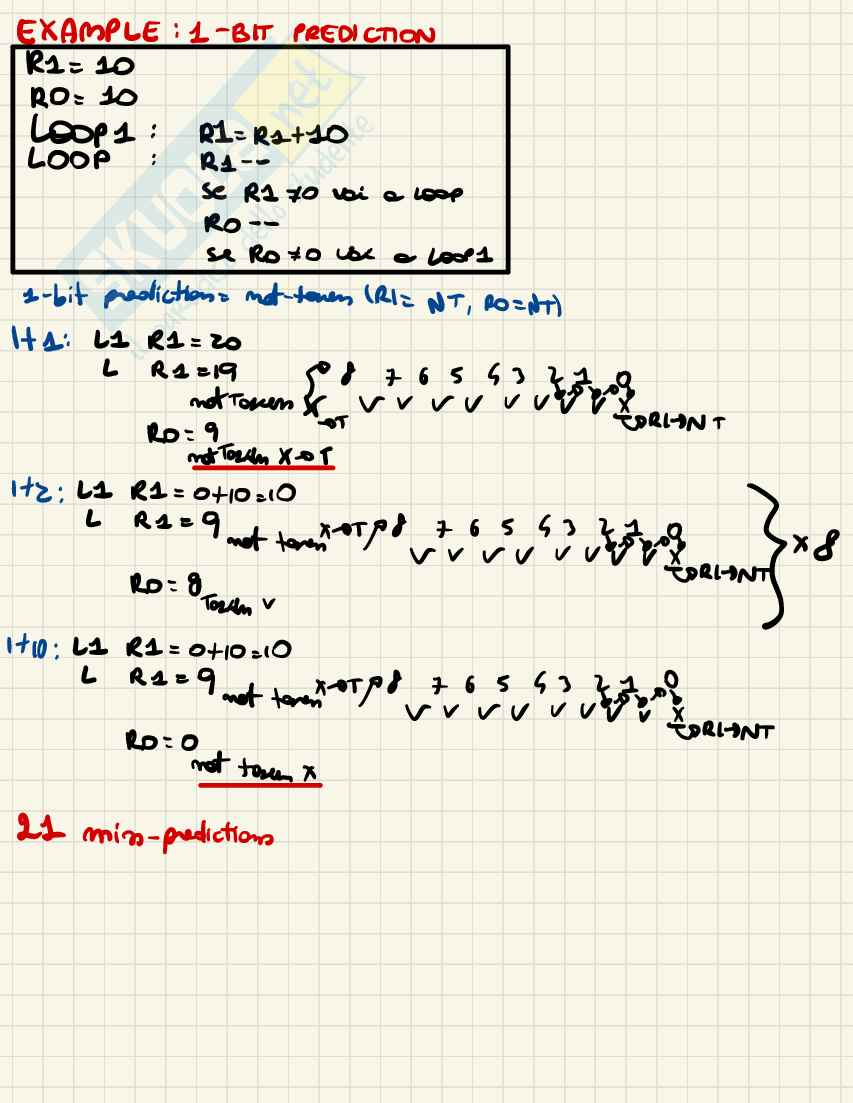 EXAMPLE : 1-BIT PREDICTION
R1= 10
R0= 10
LOOP1 : R1= R1+10
LOOP : R1--
se R1 ≠0 vai a loop
R0 --
se R0 ≠0 vai a loop1
1-bit prediction= not-taken (R1= NT, R0=NT)
It1: L1 R1=20
L R1=19 8 7 6 5 4 3 2 1 0
not taken X→T ✓ ✓ ✓ ✓ ✓ ✓ ✓ ✓ X
→R1→NT
R0= 9
not taken X→T
It2: L1 R1=0+10=10
L R1=9 not taken X→T 8 7 6 5 4 3 2 1 0
✓ ✓ ✓ ✓ ✓ ✓ ✓ ✓ X
→R1→NT
} x 8
R0=8 Taken ✓
It10: L1 R1=0+10=10
L R1=9 not taken X→T 8 7 6 5 4 3 2 1 0
✓ ✓ ✓ ✓ ✓ ✓ ✓ ✓ X
→R1→NT
R0=0
not taken X
21 miss-predictions